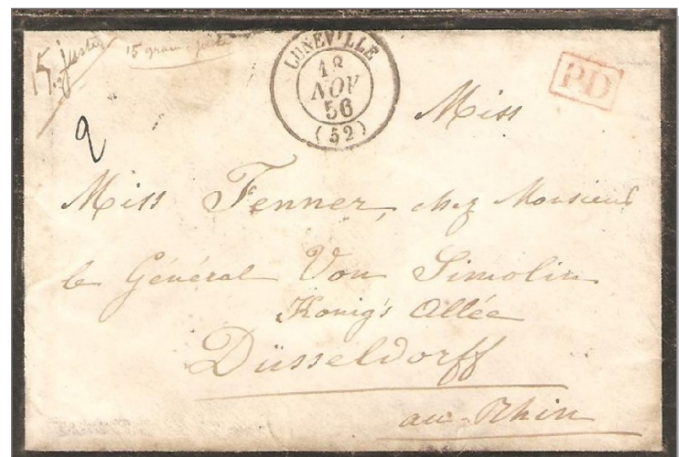 15. juste
15 gram. juste
LUNEVILLE
18
NOV
56
(52)
PD
2
Miss
Miss Fenner, chez Monsieur
le Général Von Simolin
König's Allée
Düsseldorff
au Rhin